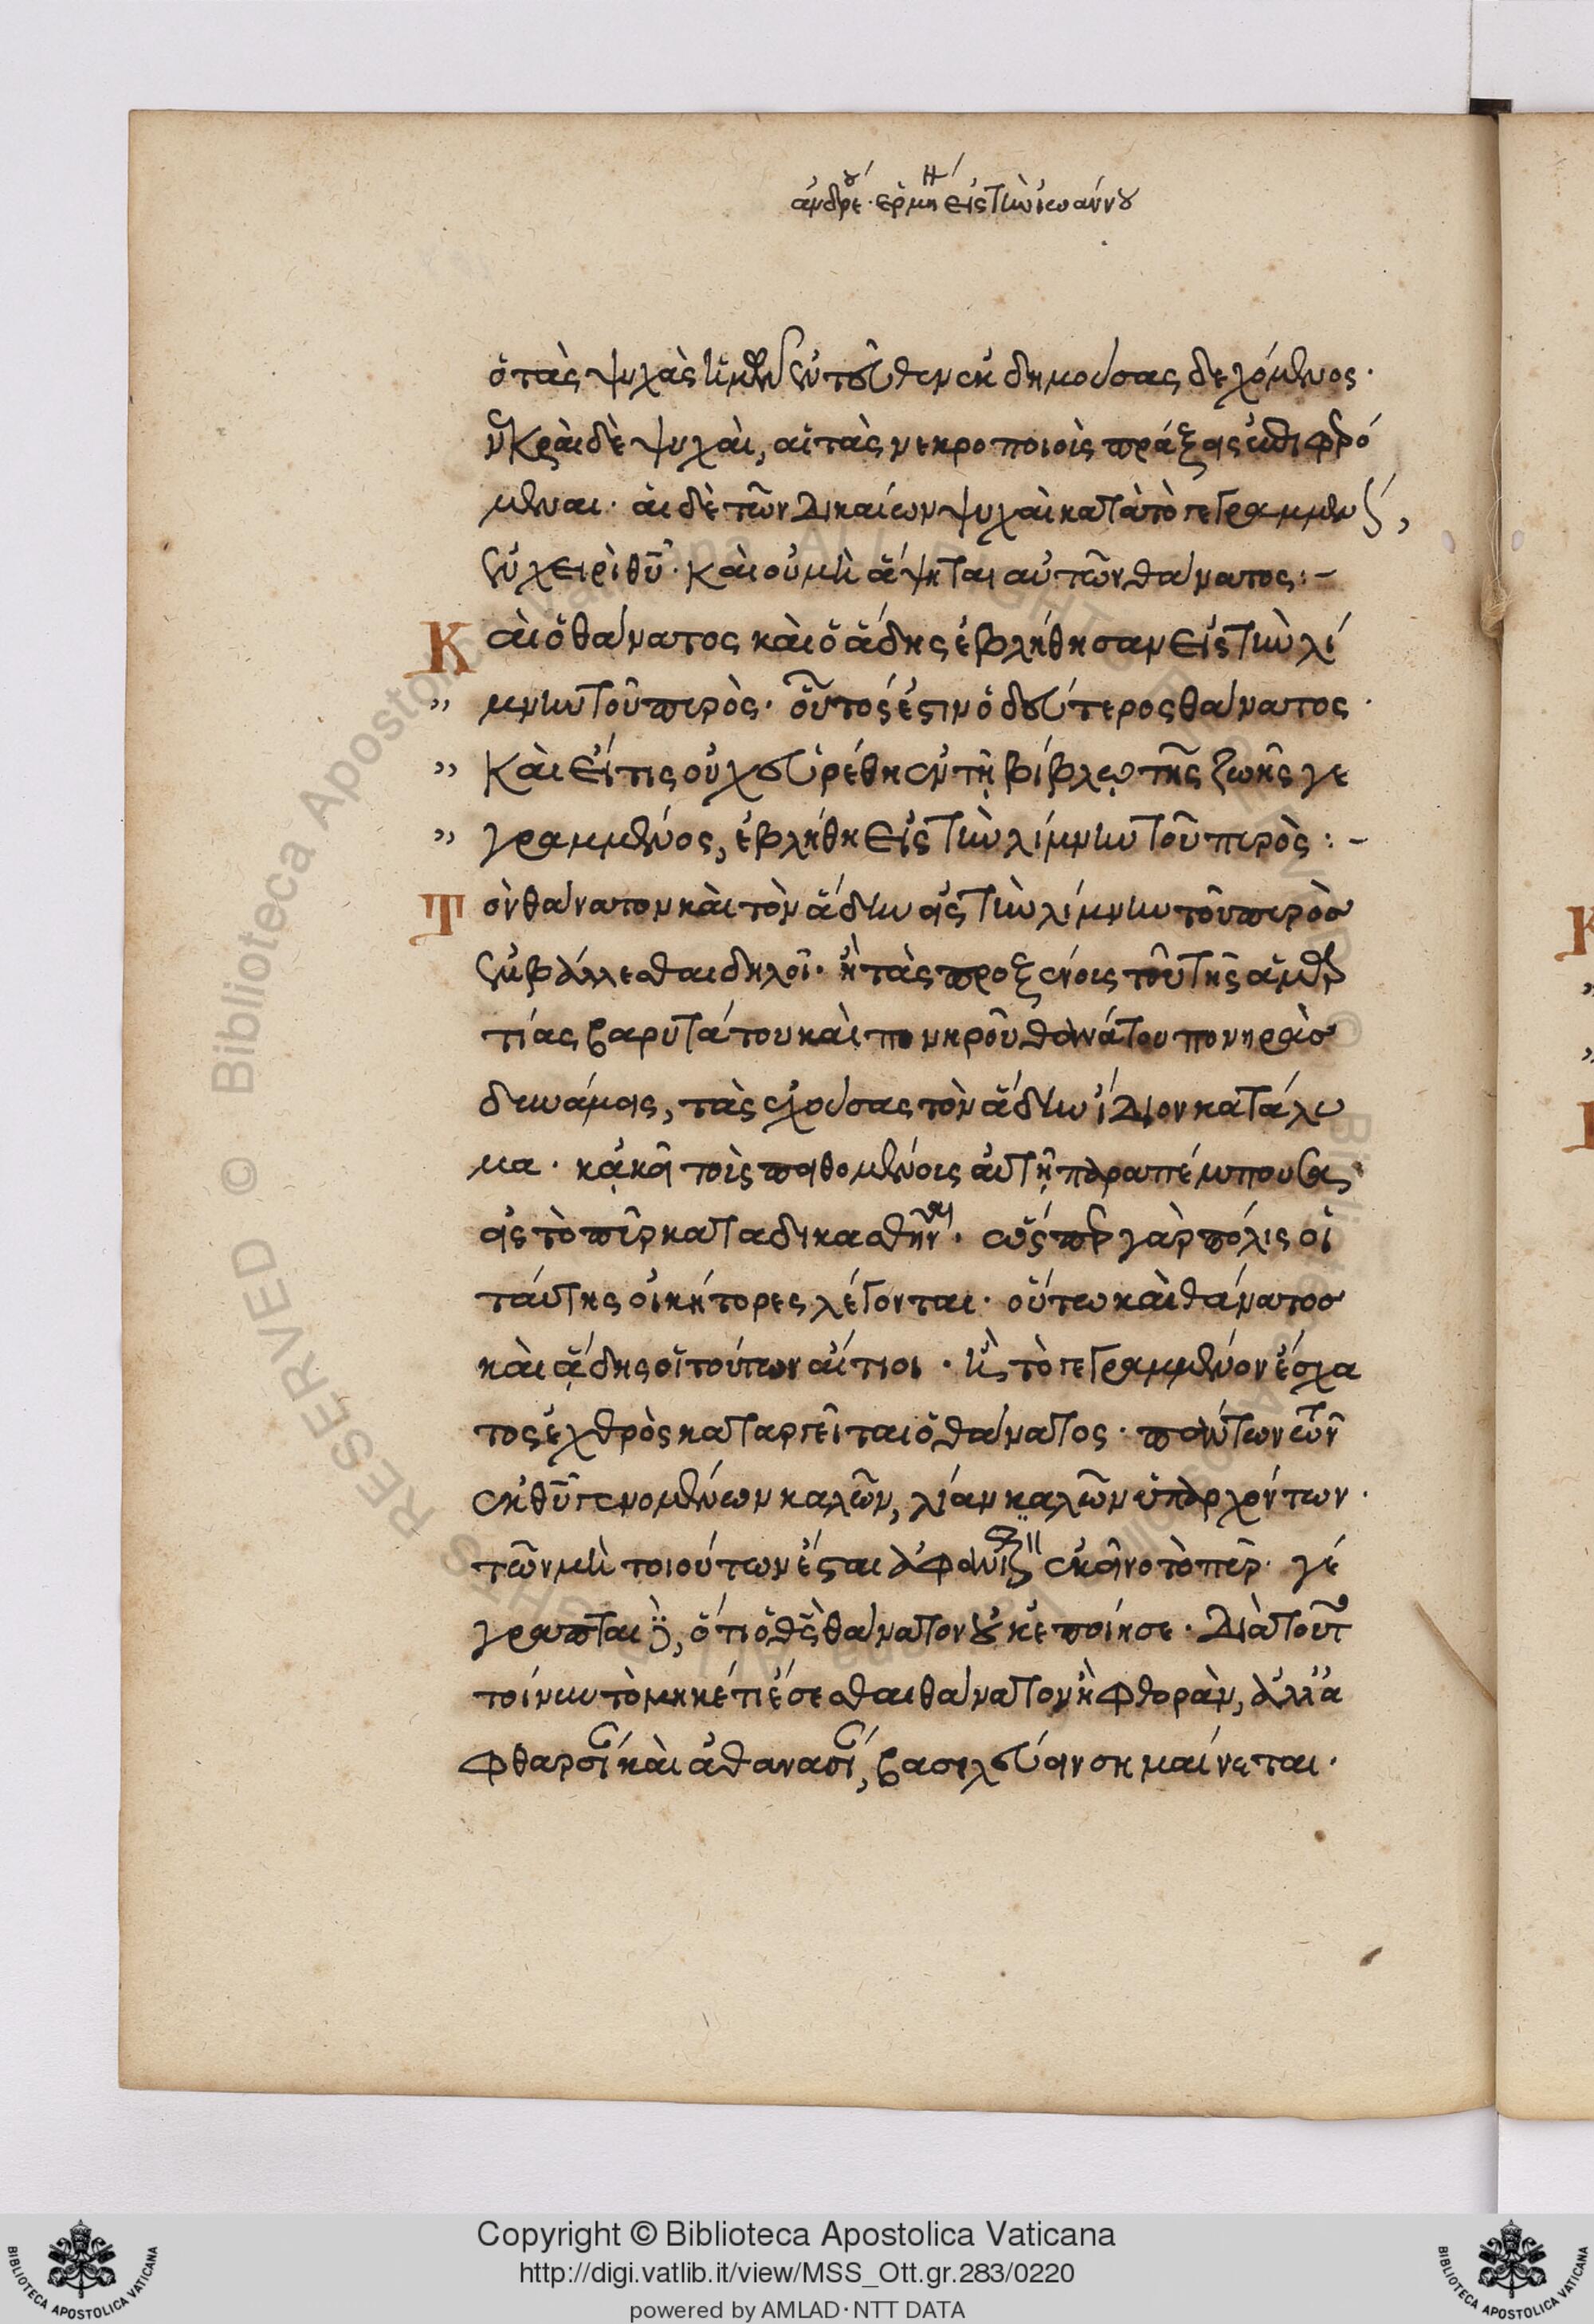 ἀνδρέου ἑρμη εἰς τὴν ἰωάννου
ὁ τὰς ψυχὰς ἡμῶν ἐντεῦθεν ἐκδημούσας δεχόμενος·
νεκραὶ δὲ ψυχαὶ, αἱ τὰς νεκροποιοὶς πράξεις ἐπιφερό
μεναι· αἱ δὲ τῶν δικαίων ψυχαὶ κατὰ τὸ γεγραμμένον,
ἐν χειρὶ θυ· καὶ οὐ μὴ ἅψηται αὐτῶν θάνατος:-
Καὶ ὁ θάνατος καὶ ὁ ἅδης ἐβλήθησαν εἰς τὴν λί
„ μνην τοῦ πυρὸς· οὗτός ἐστιν ὁ δεύτερος θάνατος·
„ καὶ εἴ τις οὐχ εὑρέθη ἐν τῇ βίβλῳ τῆς ζωῆς γε
„ γραμμένος, ἐβλήθη εἰς τὴν λίμνην τοῦ πυρὸς:-
Τὸν θάνατον καὶ τὸν ἅδην εἰς τὴν λίμνην τοῦ πυρὸς
ἐμβάλλεσθαι δηλοῖ· ἢ τὰς προξένοις τοῦ τῆς ἁμαρ
τίας βαρυτάτου καὶ πονηροῦ θανάτου πονηρὰς
δυνάμεις, τὰς ἐχούσας τὸν ἅδην ἴδιον κατάλυ
μα· κἀκεῖ τοὶς πειθομένοις αὐτῇ παραπέμπουσας
εἰς τὸ πῦρ καταδικασθῆναι· ὥσπερ γὰρ πόλις οἱ
ταύτης οἰκήτορες λέγονται· οὕτω καὶ θάνατος
καὶ ᾅδης οἱ τούτων αἴτιοι· ἢ τὸ γεγραμμένον ἔσχα
τος ἐχθρὸς καταργεῖται ὁ θάνατος· πάντων τῶν
ἐκ θυ γενομένων καλῶν, λίαν καλῶν ὑπαρχόντων·
τῶν μὴ τοιούτων ἔσται ἀφανίζον ἐκεῖνο τὸ πῦρ· γέ
γραπται γὰρ, ὅτι ὁ θς θάνατον οὐκ ἐποίησε· Διὰ τοῦτο
τοίνυν τὸ μηκέτι ἔσεσθαι θάνατον ἢ φθορὰν, ἀλλ' ἀ
φθαρσίαν καὶ ἀθανασίαν, βασιλεύειν σημαίνεται·
Copyright © Biblioteca Apostolica Vaticana
http://digi.vatlib.it/view/MSS_Ott.gr.283/0220
powered by AMLAD·NTT DATA